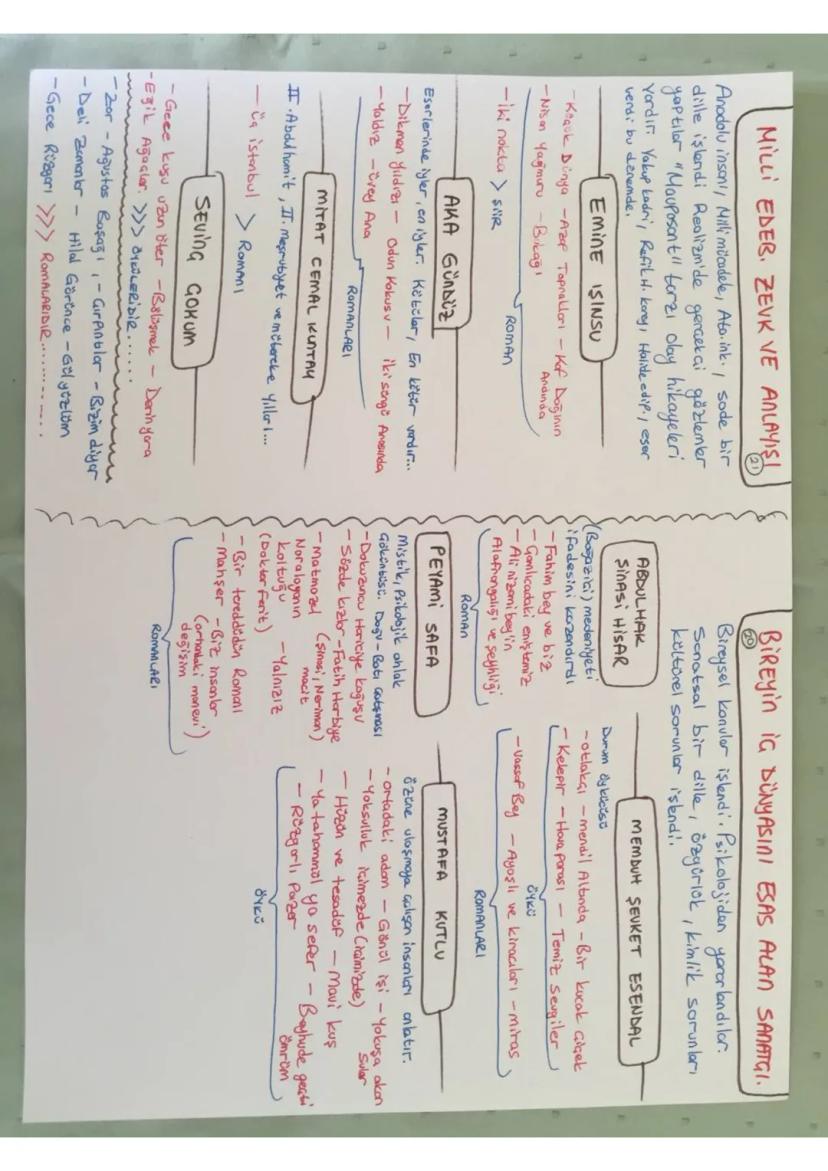 MİLLİ EDEB. ZEVK VE ANLAYIŞI
21
Anadolu insanı, Milli mücadele, Ata.ink., sade bir
dille işlendi Realizm'de gerçekçi gözlemler
yaptılar "Mauposont" tarzı olay hikayeleri
vardır. Yakup kadri, Refik H. karay, Halide edip, eser
verdi bu dönemde.
EMİNE IŞINSU
- Küçük Dünya - Azap Toprakları - Kaf Dağının
Ardında
- Nisan Yağmuru - Bukağı
ROMAN
- iki nokta > ŞİİR
AKA GÜNDÜZ
Eserlerinde iyiler, en iyiler. Kötüler, En kötür vardır...
- Dikmen Yıldızı - Odun Kokusu - iki süngü Arasında
- Yaldız - Üvey Ana
ROMANLARI
MİTAT CEMAL KUNTAY
II. Abdulhamit, II. meşrutiyet ve mütareke Yılları...
- Üç istanbul > Romanı
SEVİNÇ ÇOKUM
- Gece kuşu uzun öter - Bölüşmek - Derin yara
- Eğik Ağaçlar. >>> ÖYKÜLERİDİR......
- Zor - Ağustos Başağı, - Çırpıntılar - Bizim diyar
- Deli Zamanlar - Hilal Görünce - Gül yüzlüm
- Gece Rüzgarı >>> ROMANLARIDIR............
BİREYİN İÇ DÜNYASINI ESAS ALAN SANATÇI.
20
Bireysel konular işlendi. Psikolojiden yararlandılar.
Sanatsal bir dille, özgürlük, kimlik sorunları
kültürel sorunlar işlendi.
ABDULHAK
ŞİNASİ HİSAR
(Boğaziçi) medeniyeti
ifadesini kazandırdı
- Fahim bey ve biz
- Çamlıcadaki eniştemiz
- Ali nizami bey'in
Alafrangalığı ve şeyhliği
ROMAN
MEMDUH ŞEVKET ESENDAL
Durum öykücüsü
- otlakçı - mendil Altında - Bir kucak çiçek
- Kelepir - Hava parası - Temiz sevgiler
ÖYKÜ
- Vassaf Bey - Ayaşlı ve kiracıları - miras
ROMANLARI
PEYAMİ SAFA
Mistik, Psikolojik ahlak
Çöküntüsü. Doğu - Batı çatışması
- Dokuzuncu Hariciye koğuşu
- Sözde kızlar - Fatih Harbiye
(Şinasi, Neriman)
macit
- Matmazel
Noralayanın
koltuğu - Yalnızız
(Doktor ferit)
- Bir tereddütün Romanı
- Mahşer - Biz insanlar
(orhandaki manevi
değişim)
ROMANLARI
MUSTAFA KUTLU
özüne ulaşmaya çalışan insanları anlatır.
- ortadaki adam - Gönül işi - Yokuşa akan
Sular
- Yoksulluk içimezde (içimizde)
- Hüzün ve tesadüf - Mavi kuş
- Ya tahammül ya sefer - Beyhude geçti
ömrüm
- Rüzgarlı Pazar
ÖYKÜ